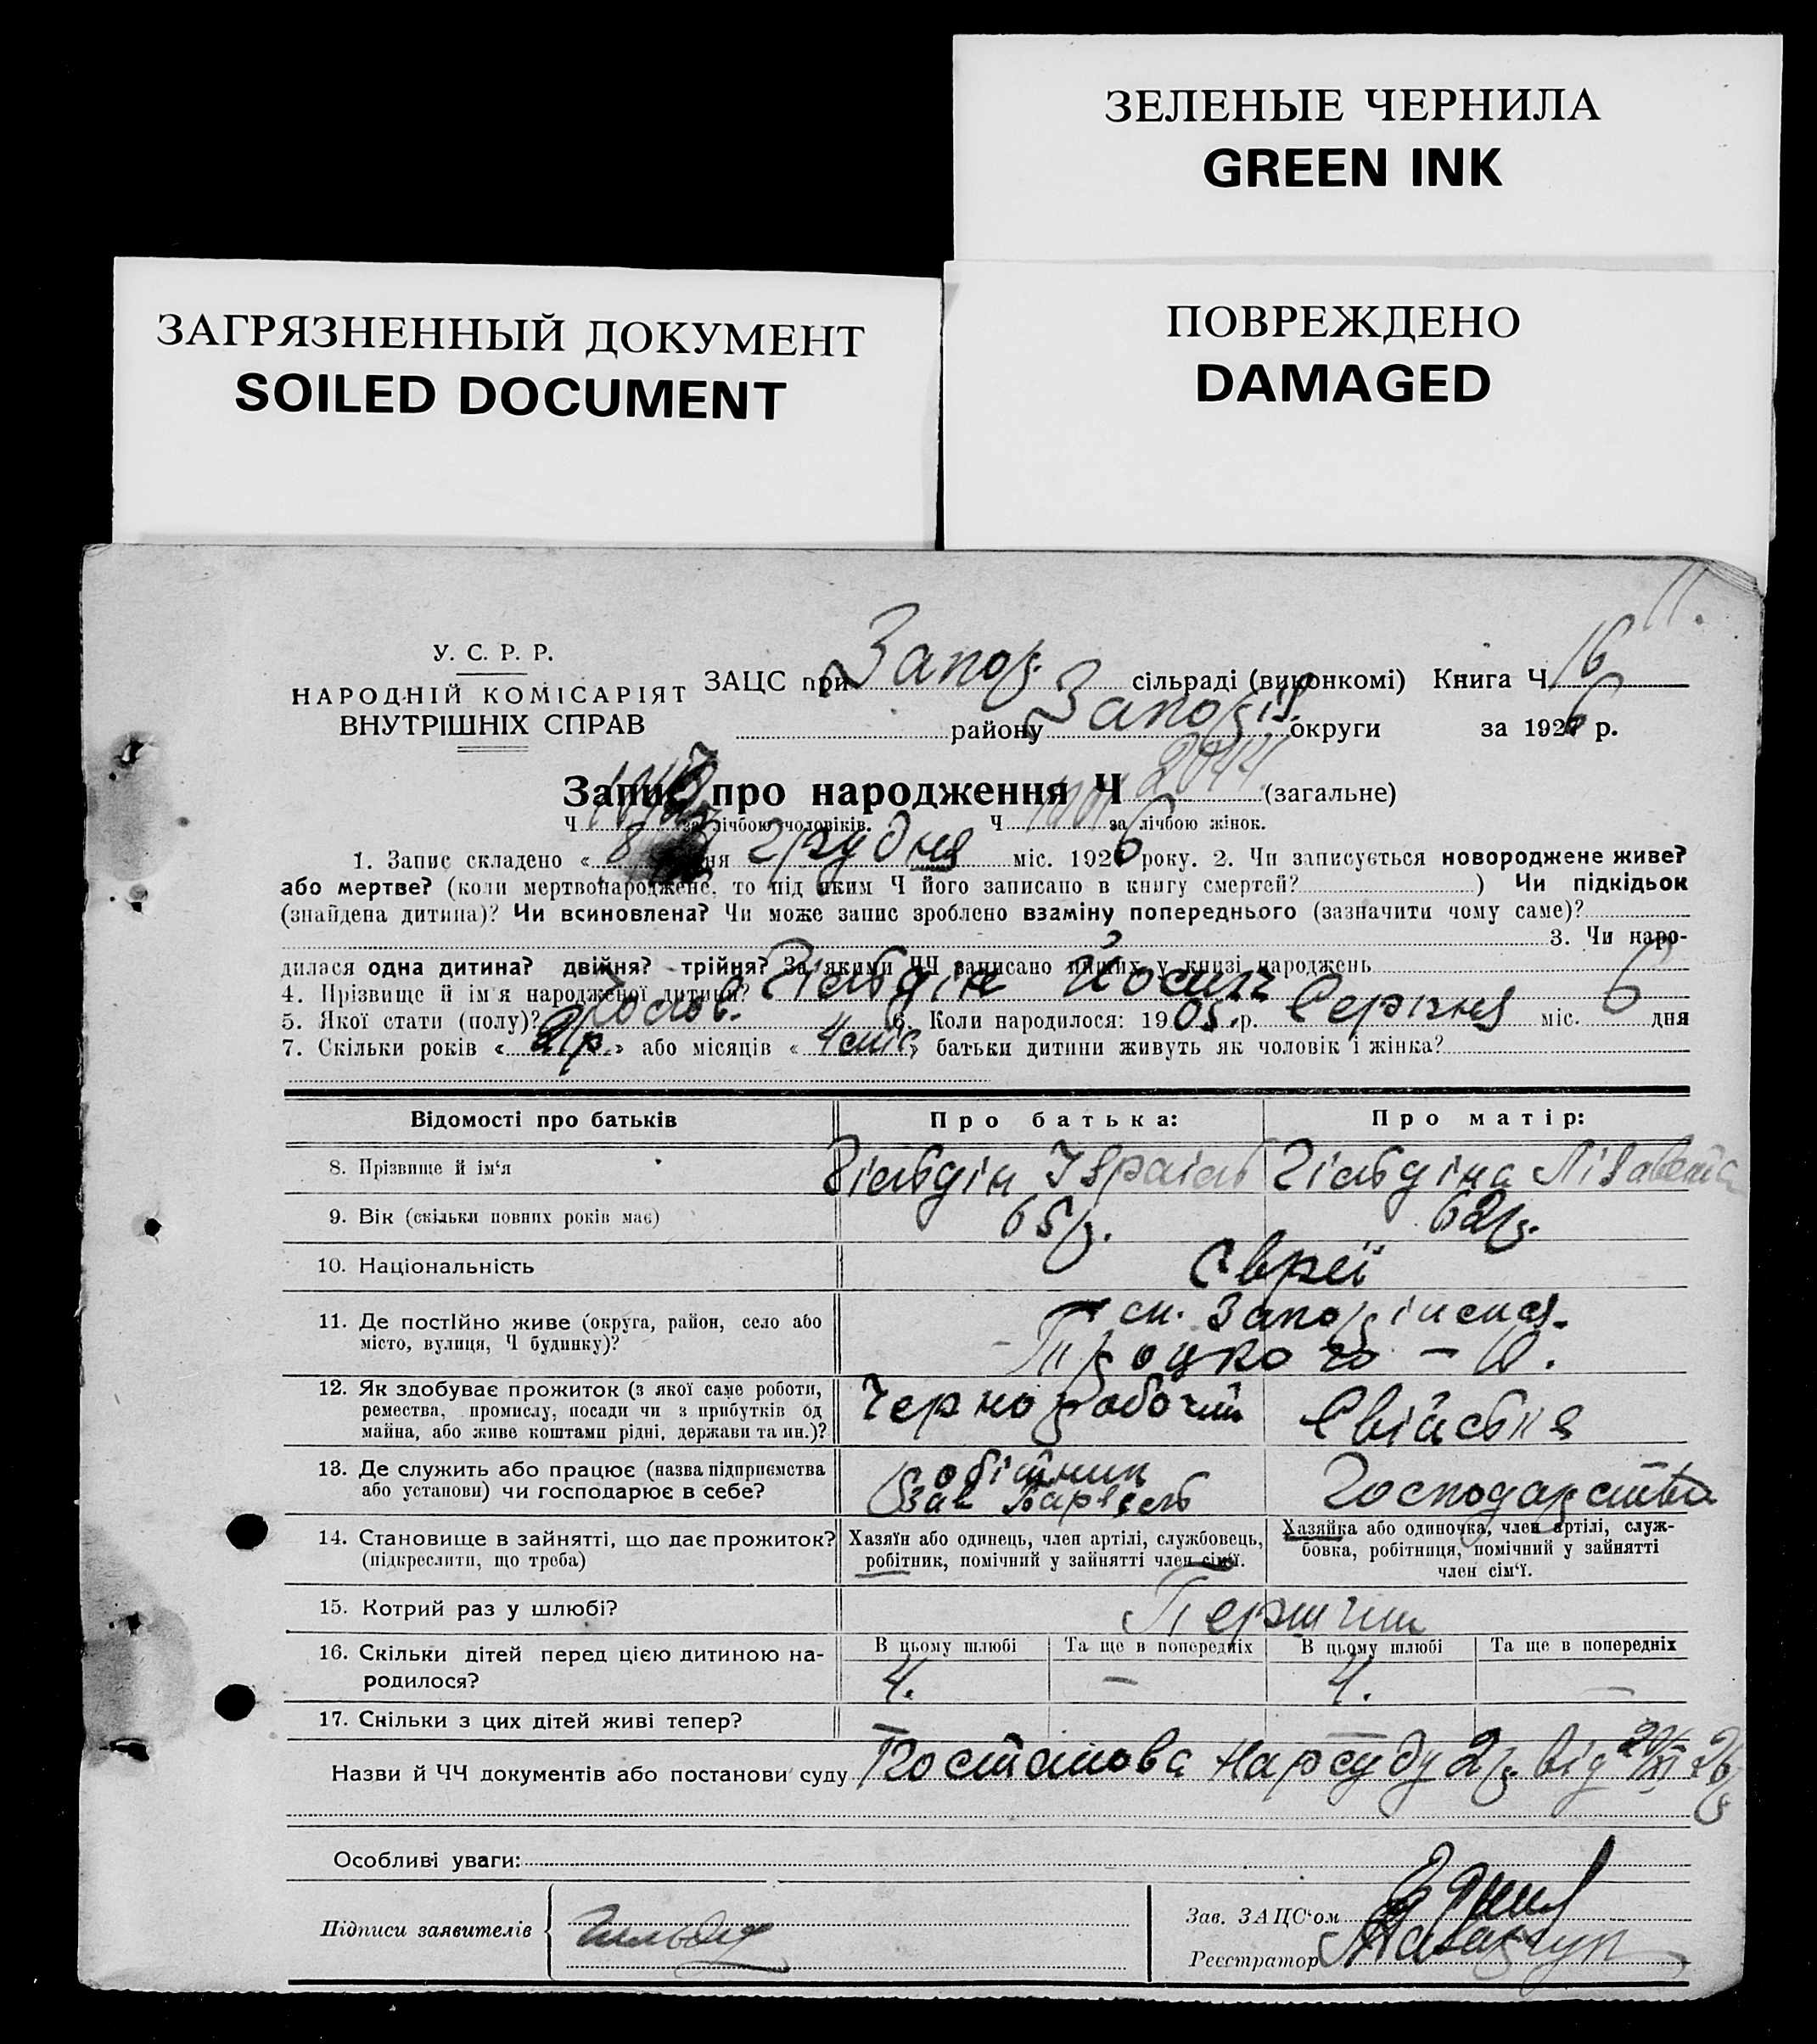 ЗЕЛЕНЫЕ ЧЕРНИЛА
GREEN INK
ЗАГРЯЗНЕННЫЙ ДОКУМЕНТ
SOILED DOCUMENT
ПОВРЕЖДЕНО
DAMAGED
11.
У. С. Р. Р.
НАРОДНІЙ КОМІСАРІЯТ
ВНУТРІШНІХ СПРАВ
ЗАЦС при Запоз. сільраді (виконкомі) Книга Ч. 16
району Запоріз округи за 1926 р.
Запис про народження Ч 2044 (загальне)
Ч за лічбою чоловіків. Ч за лічбою жінок.
1. Запис складено « 8 » дня Грудня міс. 1926 року. 2. Чи записується новороджене живе?
або мертве? (коли мертвонароджене, то під яким Ч його записано в книгу смертей? ) Чи підкідьок
(знайдена дитина)? Чи всиновлена? Чи може запис зроблено взаміну попереднього (зазначити чому саме)?
3. Чи наро-
дилася одна дитина? двійня? трійня? За якими ЧЧ записано инших у книзі народжень
4. Прізвище й ім'я народженої дитини? Гільдін Йосип
5. Якої стати (полу)? Чолов. 6. Коли народилося: 1905 р. Серпня міс. 6 дня
7. Скільки років « 21р. » або місяців « 4 міс » батьки дитини живуть як чоловік і жінка?
Відомості про батьків
Про батька:
Про матір:
8. Прізвище й ім'я Гільдін Ізраіль Гільдіна Лізавета
9. Вік (скільки повних років має) 65р. 62р.
10. Національність Євреї
11. Де постійно живе (округа, район, село або
місто, вулиця, Ч будинку)?
Троцкого
12. Як здобуває прожиток (з якої саме роботи,
ремества, промислу, посади чи з прибутків од
майна, або живе коштами рідні, держави та ин.)?
Чернорабочий Свійське
13. Де служить або працює (назва підприємства
або установи) чи господарює в себе?
Господарство
14. Становище в зайнятті, що дає прожиток?
(підкреслити, що треба)
Хазяїн або одинець, член артілі, службовець,
робітник, помічний у зайнятті член сім'ї.
Хазяйка або одиночка, член артілі, служ-
бовка, робітниця, помічний у зайнятті
член сім'ї.
15. Котрий раз у шлюбі? Перший
16. Скільки дітей перед цією дитиною на-
родилося?
В цьому шлюбі Та ще в попередніх В цьому шлюбі Та ще в попередніх
4. — 4. —
17. Скільки з цих дітей живі тепер?
Назви й ЧЧ документів або постанови суду Постанова Нарсуду 2р. від 20/XI 26р
Особливі уваги:
Підписи заявителів
Зав. ЗАЦС'ом
Реєстратор